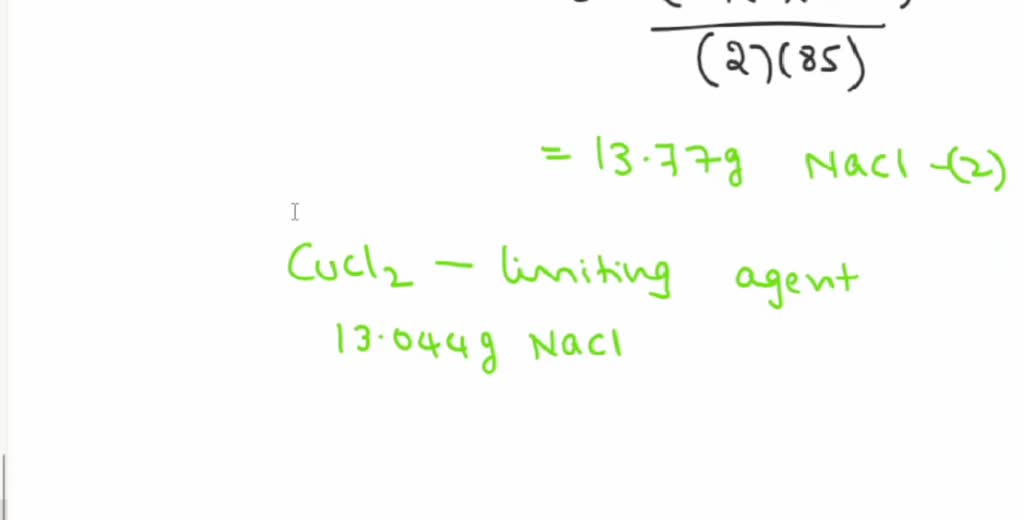 (2)(85)
= 13.77g NaCl -(2)
CuCl2 - limiting agent
13.044g NaCl